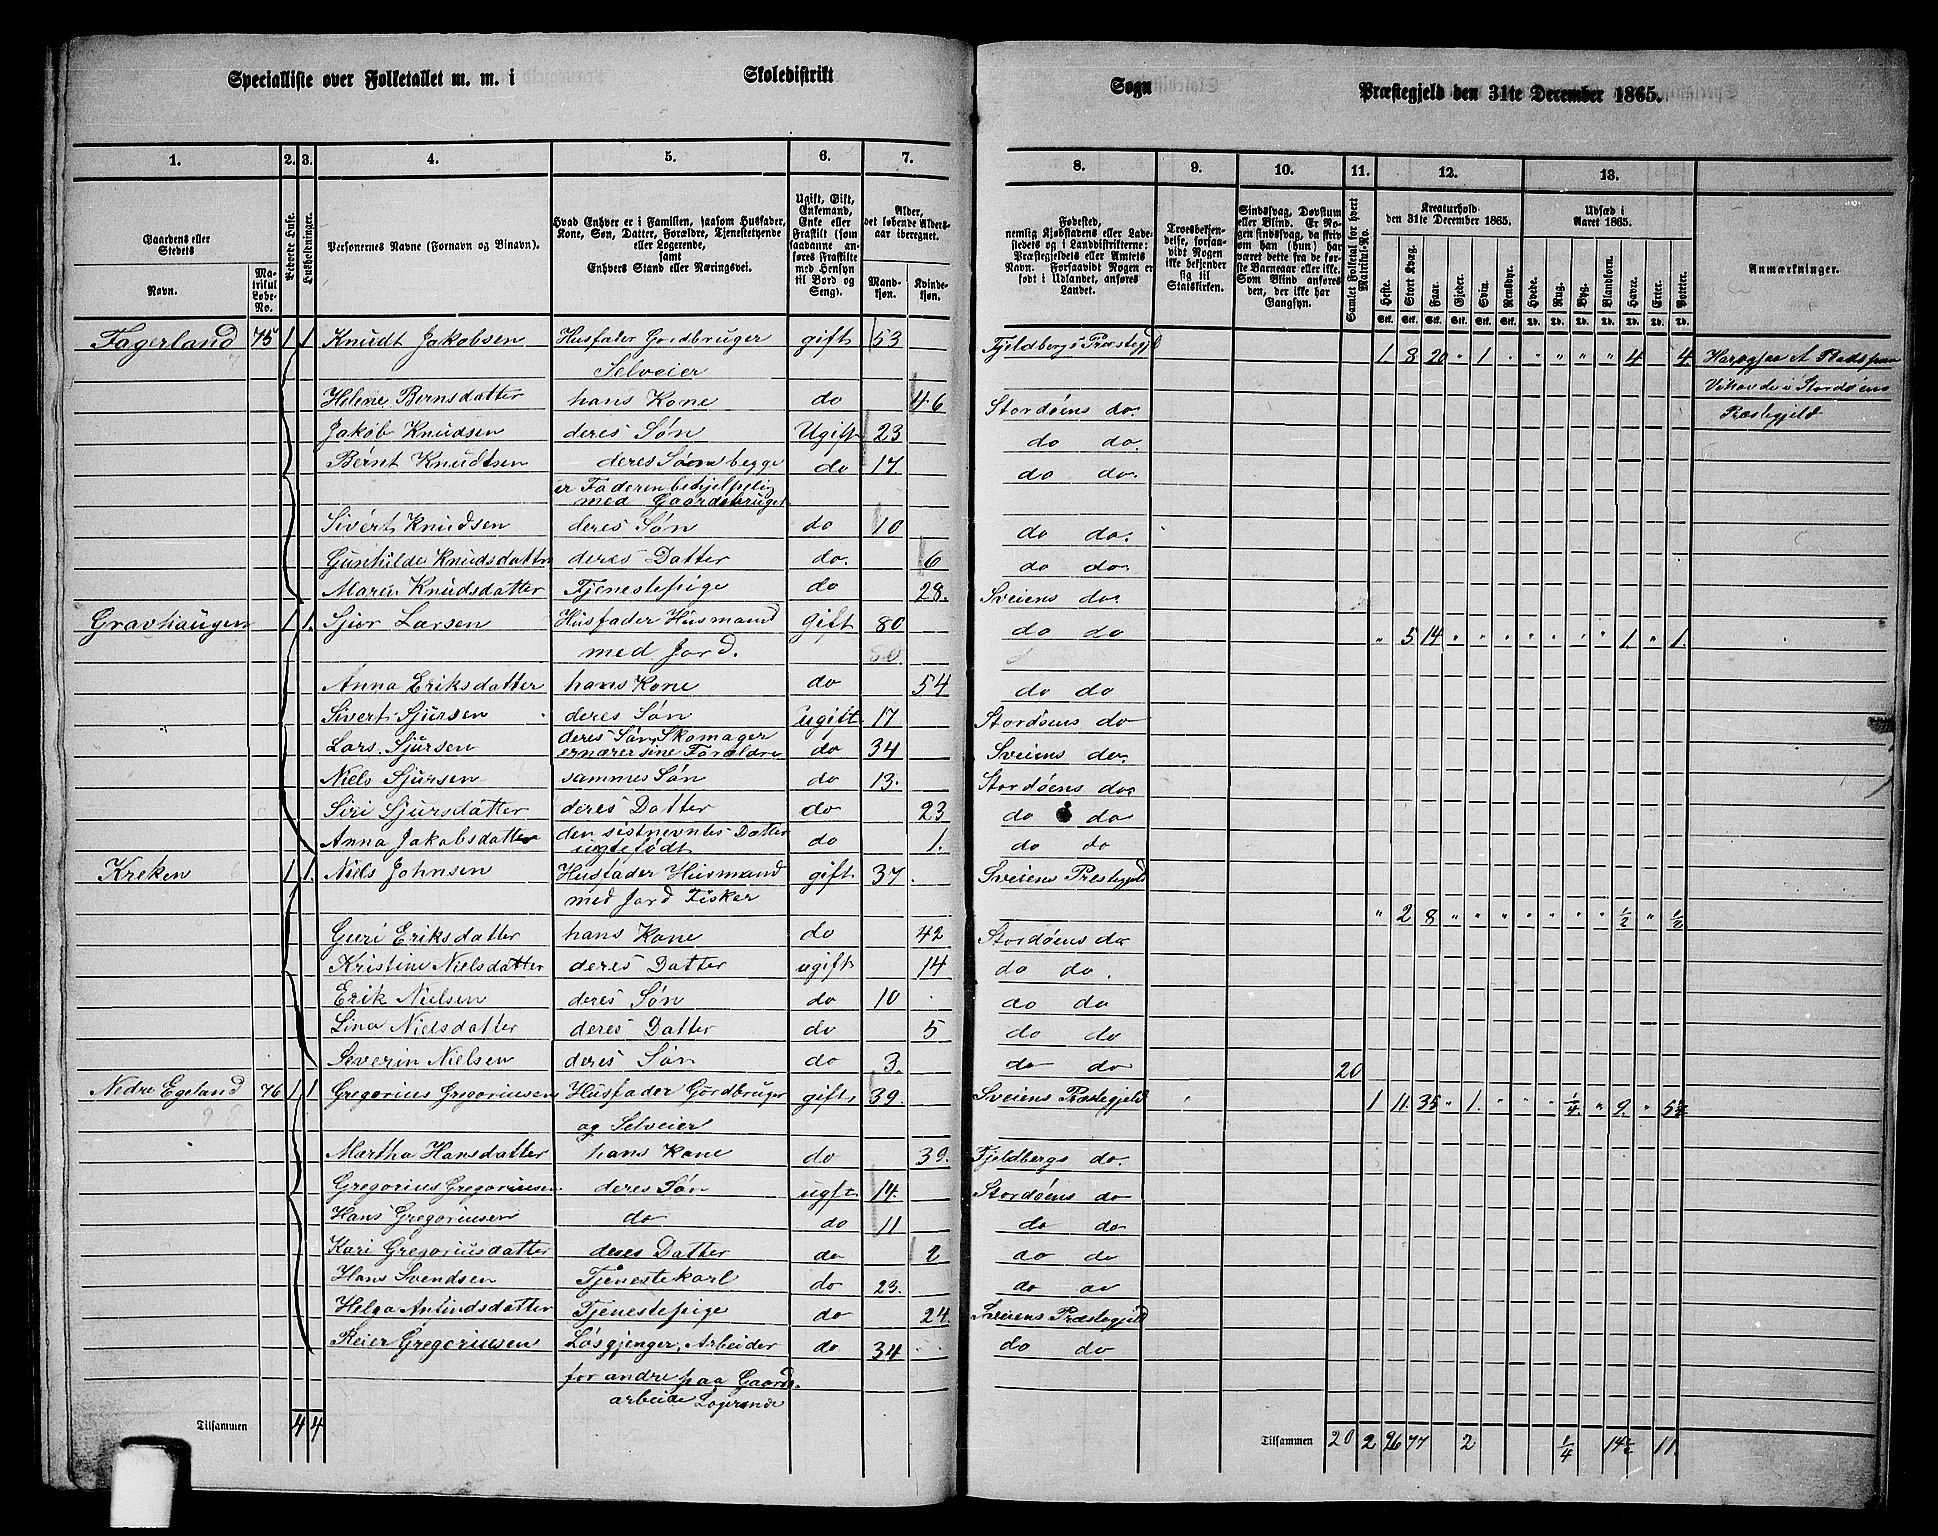 Specialliste over Folketallet m. m. i Skoledistrikt Sogn Præstegjeld den 31te December 1865.
1. 2. 3. 4. 5. 6. 7. 8. 9. 10. 11. 12. 13.
Gaardens eller Stedets Navn.
Matrikul Løbe-No.
Beboede Huse.
Husholdninger.
Personernes Navne (Fornavn og Binavn).
Hvad Enhver er i Familien, saasom Husfader, Kone, Søn, Datter, Forældre, Tjenestetyende eller Logerende, samt Enhvers Stand eller Næringsvei.
Ugift, Gift, Enkemand, Enke eller Fraskilt (som saadanne anføres Fraskilte med Hensyn til Bord og Seng).
Alder, det løbende Aldersaar iberegnet.
Mandkjøn. Kvindekjøn.
Fødested, nemlig Kjøbstadens eller Ladestedets og i Landdistrikterne: Præstegjeldets eller Amtets Navn. Forsaavidt Nogen er født i Udlandet, anføres Landet.
Troesbekjendelse, forsaavidt Nogen ikke bekjender sig til Statskirken.
Sindssvag, Døvstum eller Blind. Er Nogen sindssvag, da skrives om han (hun) har været dette fra de første Barneaar eller ikke. Som Blind anføres den, der ikke har Gangsyn.
Samlet Folketal for hvert Matrikul-No.
Kreaturhold den 31te December 1865.
Heste. Stort Kvæg. Faar. Gjeder. Svin. Rensdyr.
Udsæd i Aaret 1865.
Hvede. Rug. Byg. Blandkorn. Havre. Erter. Poteter.
Anmærkninger.
Fagerland 75 1 1 Knudt Jakobsen Husfader Gordbruger gift 53 Fjeldbergs Præstegjd 1 8 20 " 1 " " " " " 4 4
Selveier
Helene Bernsdatter hans Kone do 46 Stordøens do.
Vikanes i Stordøens
Præstegjeld
Jakob Knudsen deres Søn Ugift 23 do do.
Bérnt Knudtsen deres Søn begge do 17. do do.
er Faderen behjelpelig
med Gaardsbruget
Sivert Knudsen deres Søn do 10 do do.
Gunhilde Knudsdatter deres Datter do. 6 do do.
Maren Knudsdatter Tjenestepige do 28. Sveiens do.
Gravhaugen 1 1. Sjur Larsen Husfader Husmand Gift 80 do do " 5 14 " " " " " " " 1. " 1.
med Jord. 80
Anna Eriksdatter hans Kone do 54 do do
Sivert Sjursen deres Søn ugift 17 Stordøens do
Lars Sjursen deres Søn Skomager do 34 Sveiens do.
ernærer sine Forældre
Niels Sjursen sammes Søn do 13. Stordøens do.
Siri Sjursdatter deres Datter do 23 do do
Anna Jakobsdatter den sistnevntes Datter do 1. do do
ugtefødt
Kreken 1 1. Niels Johnsen Husfader Husmand gift 37 Sveiens Prestegjeld
med Jord Fisker " 2 8 " " " " " " " 1/2 " 1/2
Guri Eriksdatter hans Kone do 42 Stordøens do
Kristine Nielsdatter deres Datter ugift 14 do do.
Erik Nielsen deres Søn do 10 do do
Lina Nielsdatter deres Datter do 5 do do
Severin Nielsen deres Søn do 3. do do 20
Nedre Egeland 76 1 1 Gregorius Gregoriusen Husfader Gordbruger gift 39 Sveiens Præstegjeld 1 11. 35 " 1. " " " 1/4. " 9. " 5 1/2.
og Selveier
Martha Hansdatter hans Kone do 39. Fjeldbergs do.
Gregorius Gregoriusen deres Søn ugft 14. Stordøens do
Hans Gregoriusen do do 11 do do
Kari Gregoriusdatter deres Datter do 2 do do
Hans Svendsen Tjenestekarl do 23. do do
Helga Amundsdatter Tjenestepige do 24. Sveiens Præstegjeld
Reier Gregoriusen Løsgjenger, Arbeider do 34 do do
for andre paa Gaards
arbeide Logerende
Tilsammen 4 4 Tilsammen 20 2 26 77 2 1/4 14 1/2 11.